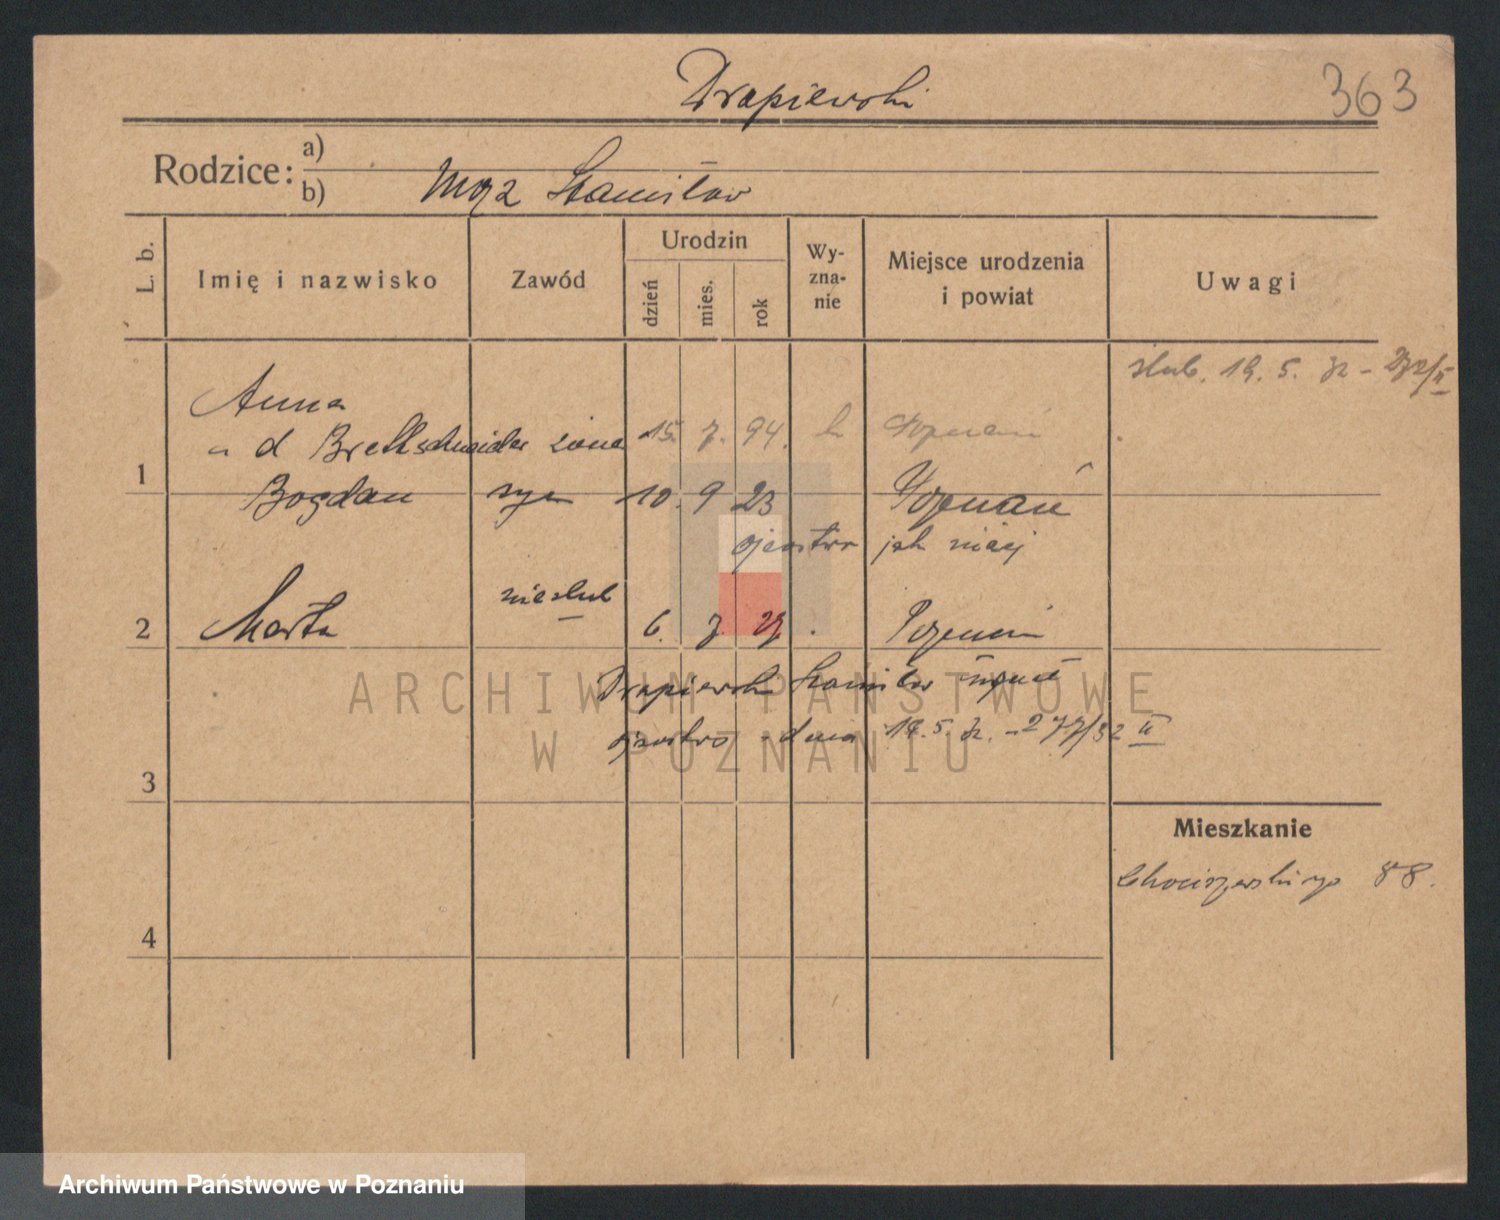 Drapiewski
363
Rodzice: a)
b) mąż Stanisław
L. b.
Imię i nazwisko
Zawód
Urodzin
dzień
mies.
rok
Wy-
zna-
nie
Miejsce urodzenia
i powiat
Uwagi
ślub. 19. 5. 32 -
Anna
d Brettschneider żona 15. 7. 94. k Poznań
1
Bogdan syn 10. 9 23 Poznań
ojcostwo jak niżej
2 Marta nieślub 6. 7. 27. Poznań
Drapiewski Stanisław uznał
ojcostwo - dnia 19. 5. 32. - 277/32 II
3
Mieszkanie
Chociszewskiego 88.
4
ARCHIWUM PAŃSTWOWE
W POZNANIU
Archiwum Państwowe w Poznaniu